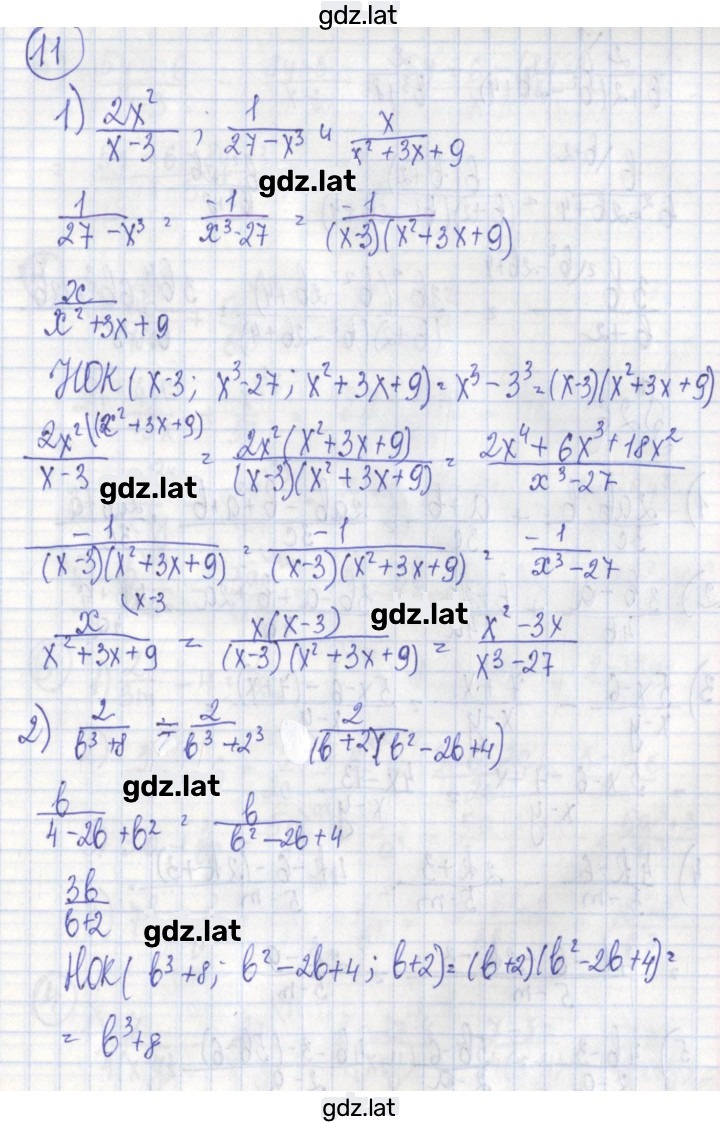 gdz.lat
11
1) 2x²/(x-3) ; 1/(27-x³) и x/(x²+3x+9)
gdz.lat
1/(27-x³) = -1/(x³-27) = -1/((x-3)(x²+3x+9))
x/(x²+3x+9)
НОК (x-3; x³-27; x²+3x+9) = x³-3³ = (x-3)(x²+3x+9)
2x²\(x²+3x+9)/(x-3) = 2x²(x²+3x+9)/((x-3)(x²+3x+9)) = (2x⁴+6x³+18x²)/(x³-27)
gdz.lat
-1/((x-3)(x²+3x+9)) = -1/((x-3)(x²+3x+9)) = -1/(x³-27)
gdz.lat
x\x-3/(x²+3x+9) = x(x-3)/((x-3)(x²+3x+9)) = (x²-3x)/(x³-27)
2) 2/(b³+8) = 2/(b³+2³) 2/((b+2)(b²-2b+4))
gdz.lat
b/(4-2b+b²) = b/(b²-2b+4)
3b/(b+2)
gdz.lat
НОК (b³+8; b²-2b+4; b+2) = (b+2)(b²-2b+4) =
= b³+8
gdz.lat